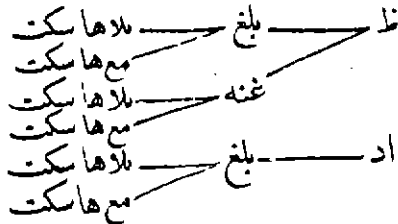 ظ بلغ بلا ها سكت
مع ها سكت
غنه بلا ها سكت
مع ها سكت
اد بلغ بلا ها سكت
مع ها سكت